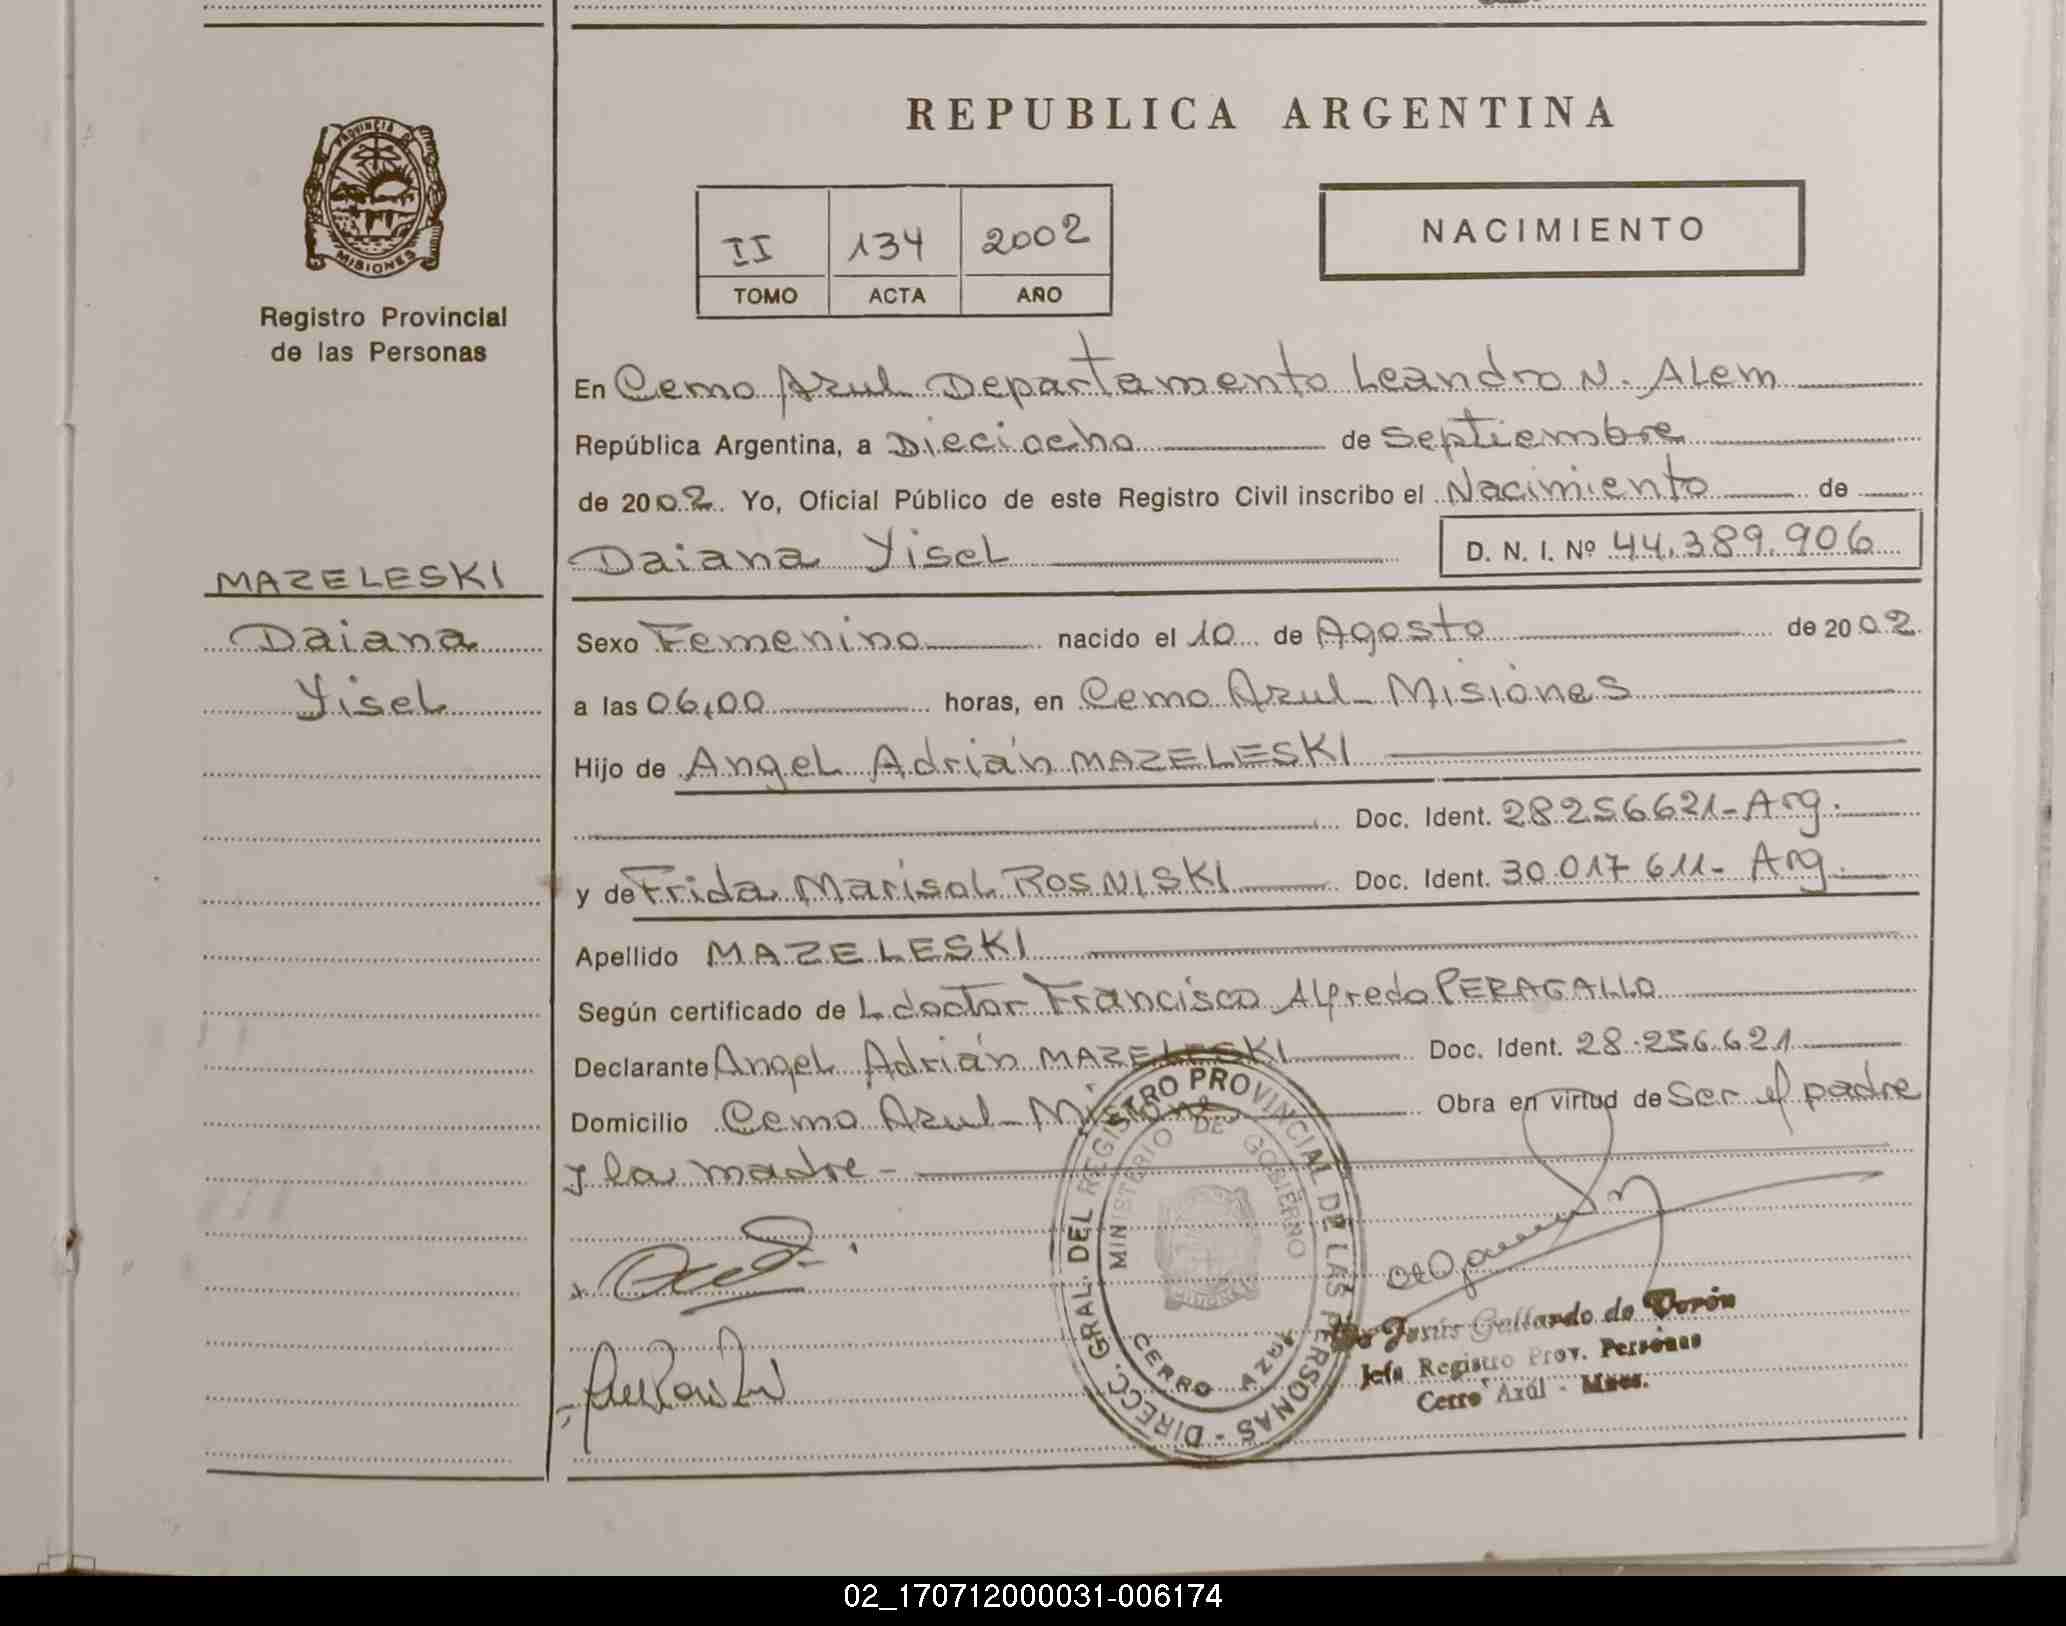 PROVINCIA DE
MISIONES
Registro Provincial
de las Personas
MAZELESKI
Daiana
Yisel
REPUBLICA ARGENTINA
II 134 2002
TOMO ACTA AÑO
NACIMIENTO
En Cerro Azul Departamento Leandro N. Alem
República Argentina, a Dieciocho de Septiembre
de 2002. Yo, Oficial Público de este Registro Civil inscribo el Nacimiento de
Daiana Yisel D. N. I. Nº 44.389.906
Sexo Femenino nacido el 10 de Agosto de 2002.
a las 06,00 horas, en Cerro Azul - Misiones
Hijo de Angel Adrián MAZELESKI
Doc. Ident. 28.256621-Arg.
y de Frida Marisol ROSNISKI Doc. Ident. 30.017 611- Arg.
Apellido MAZELESKI
Según certificado de L doctor Francisco Alfredo PERAGALLO
Declarante Angel Adrián MAZELESKI Doc. Ident. 28.256.621
Domicilio Cerro Azul - Misiones Obra en virtud de Ser el padre
y la madre -
DIRECC. GRAL. DEL REGISTRO PROVINCIAL DE LAS PERSONAS -
MINISTERIO DE GOBIERNO
MISIONES
CERRO AZUL
Jesús Gallardo de
Jefa Registro Prov. Personas
Cerro Azúl - Mnes.
02_170712000031-006174